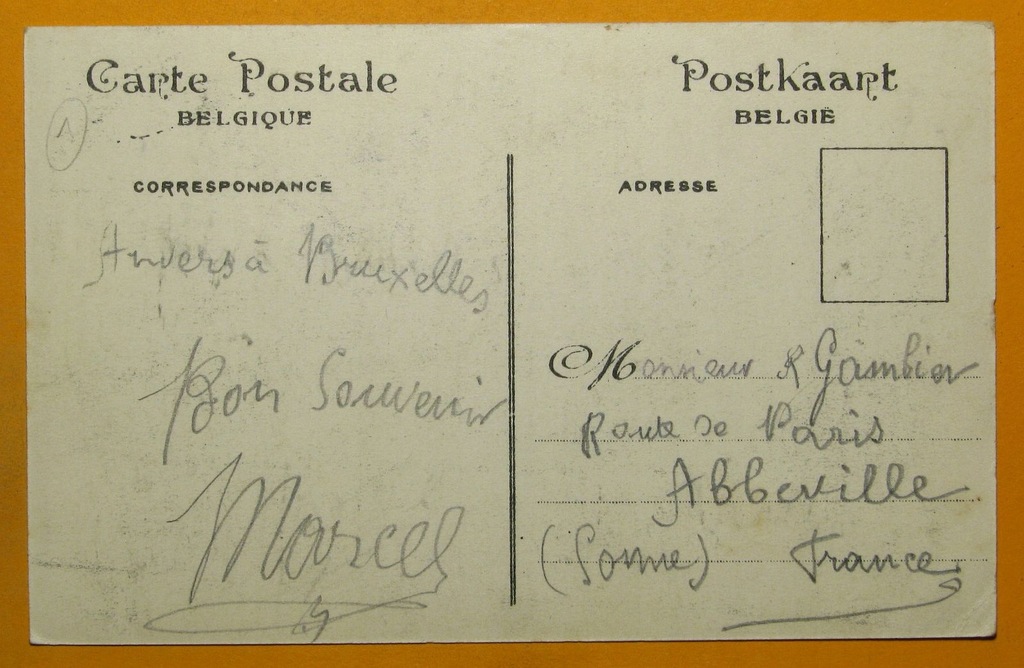 Carte Postale
BELGIQUE
1
CORRESPONDANCE
Anvers à Bruxelles
Bon Souvenir
Marcel
Postkaart
BELGIË
ADRESSE
Monsieur R Gambier
Route de Paris
Abbeville
(Somme) France